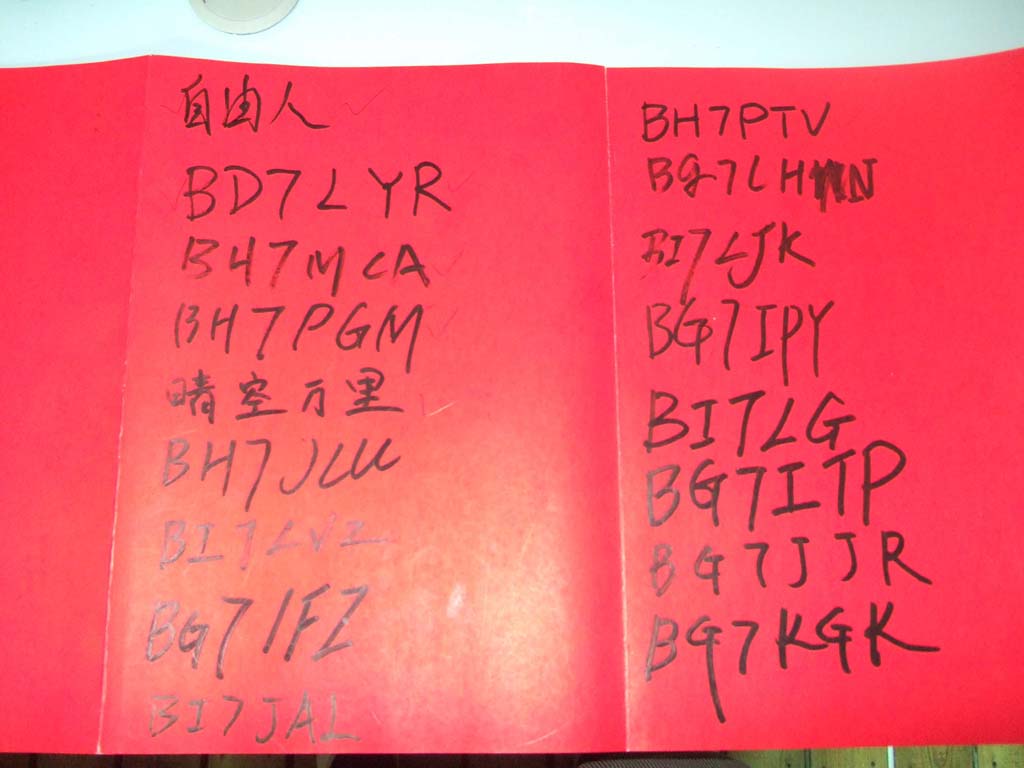 自由人
BD7LYR
BH7MCA
BH7PGM
晴空万里
BH7JLU
BI7LVZ
BG7IFZ
BI7JAL
BH7PTV
BG7LHN
BI7LJK
BG7IPY
BI7LG
BG7ITP
BG7JJR
BG7KGK